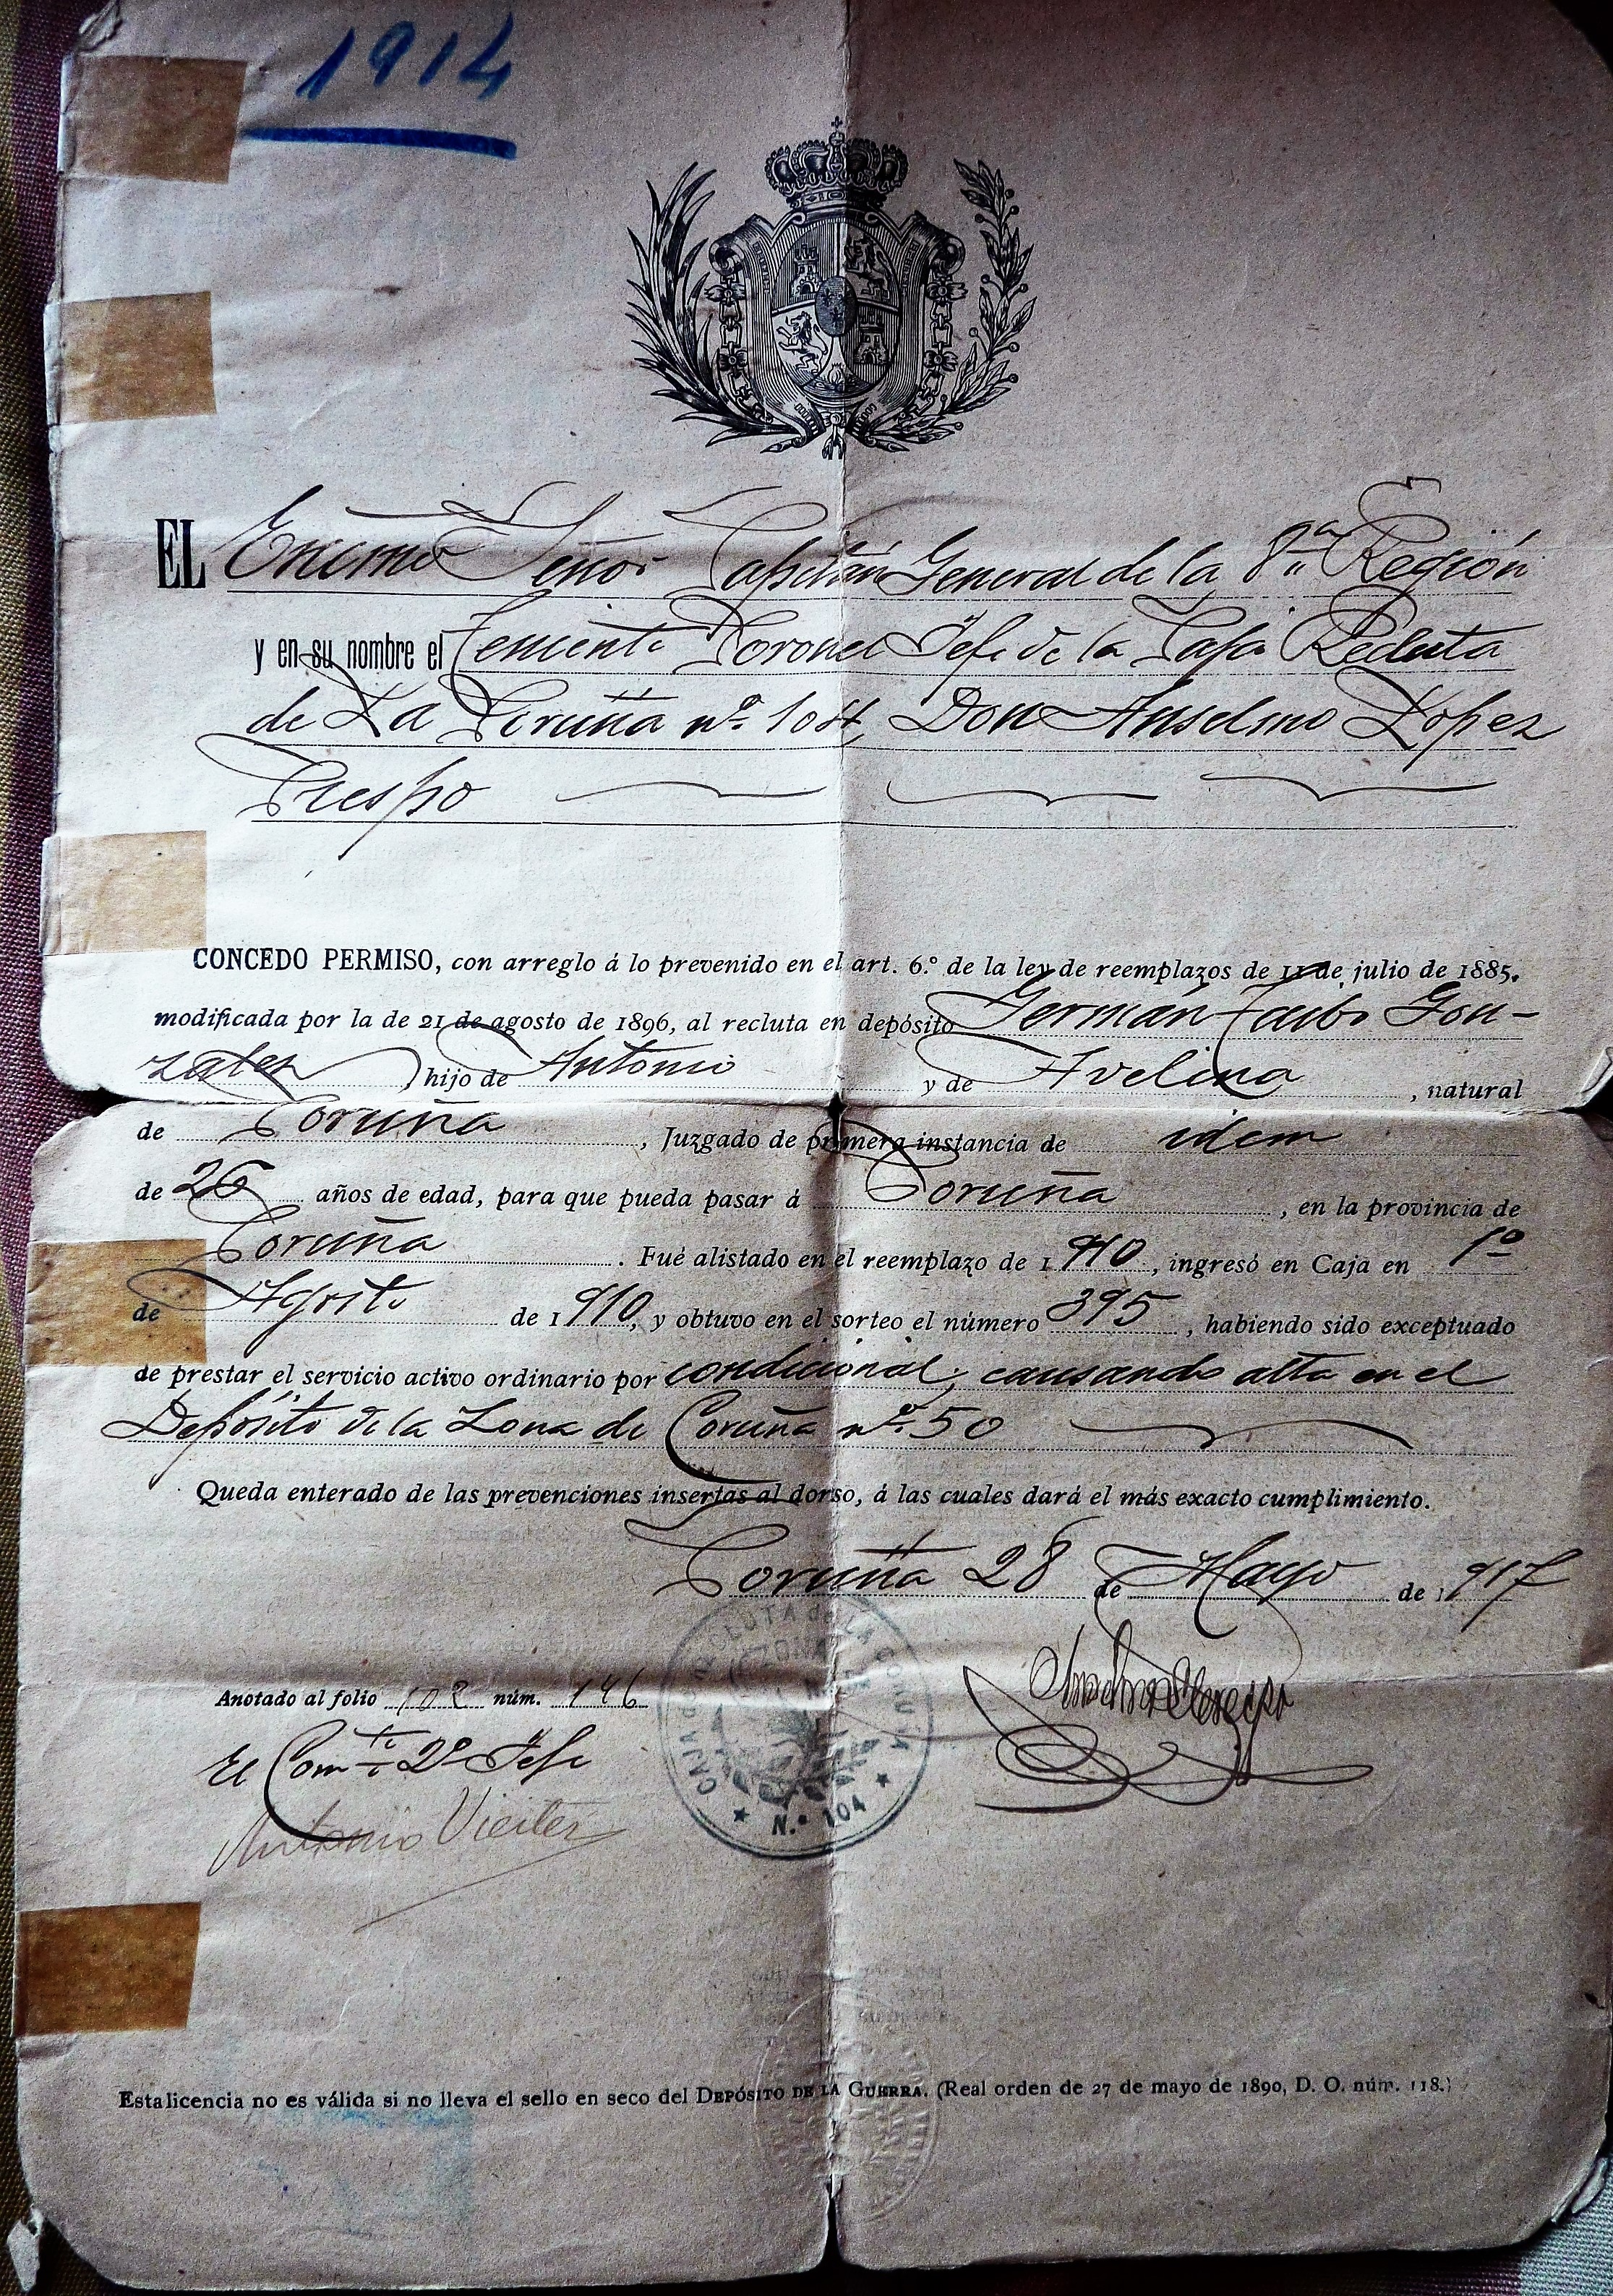 1914
EL Excmo Señor Capitán General de la 8ª Región
y en su nombre el Teniente Coronel Jefe de la Caja Recluta
de La Coruña nº 104, Don Anselmo López
Crespo
CONCEDO PERMISO, con arreglo á lo prevenido en el art. 6.º de la ley de reemplazos de 11 de julio de 1885,
modificada por la de 21 de agosto de 1896, al recluta en depósito Germán Taibo Gon-
zalez hijo de Antonio y de Avelina, natural
de Coruña, Juzgado de primera instancia de idem
de 26 años de edad, para que pueda pasar á Coruña, en la provincia de
Coruña. Fué alistado en el reemplazo de 1910, ingresó en Caja en 1º
de Agosto de 1910, y obtuvo en el sorteo el número 395, habiendo sido exceptuado
de prestar el servicio activo ordinario por condicional, causando alta en el
Depósito de la Zona de Coruña nº. 50
Queda enterado de las prevenciones insertas al dorso, á las cuales dará el más exacto cumplimiento.
Coruña 28 de Mayo de 1917
CAJA DE RECLUTA DE LA CORUÑA
N.º 104
Anotado al folio 102 núm. 146
El Comte 2º Jefe
Antonio Vieites
Esta licencia no es válida si no lleva el sello en seco del DEPÓSITO DE LA GUERRA. (Real orden de 27 de mayo de 1890, D. O. núm. 118.)